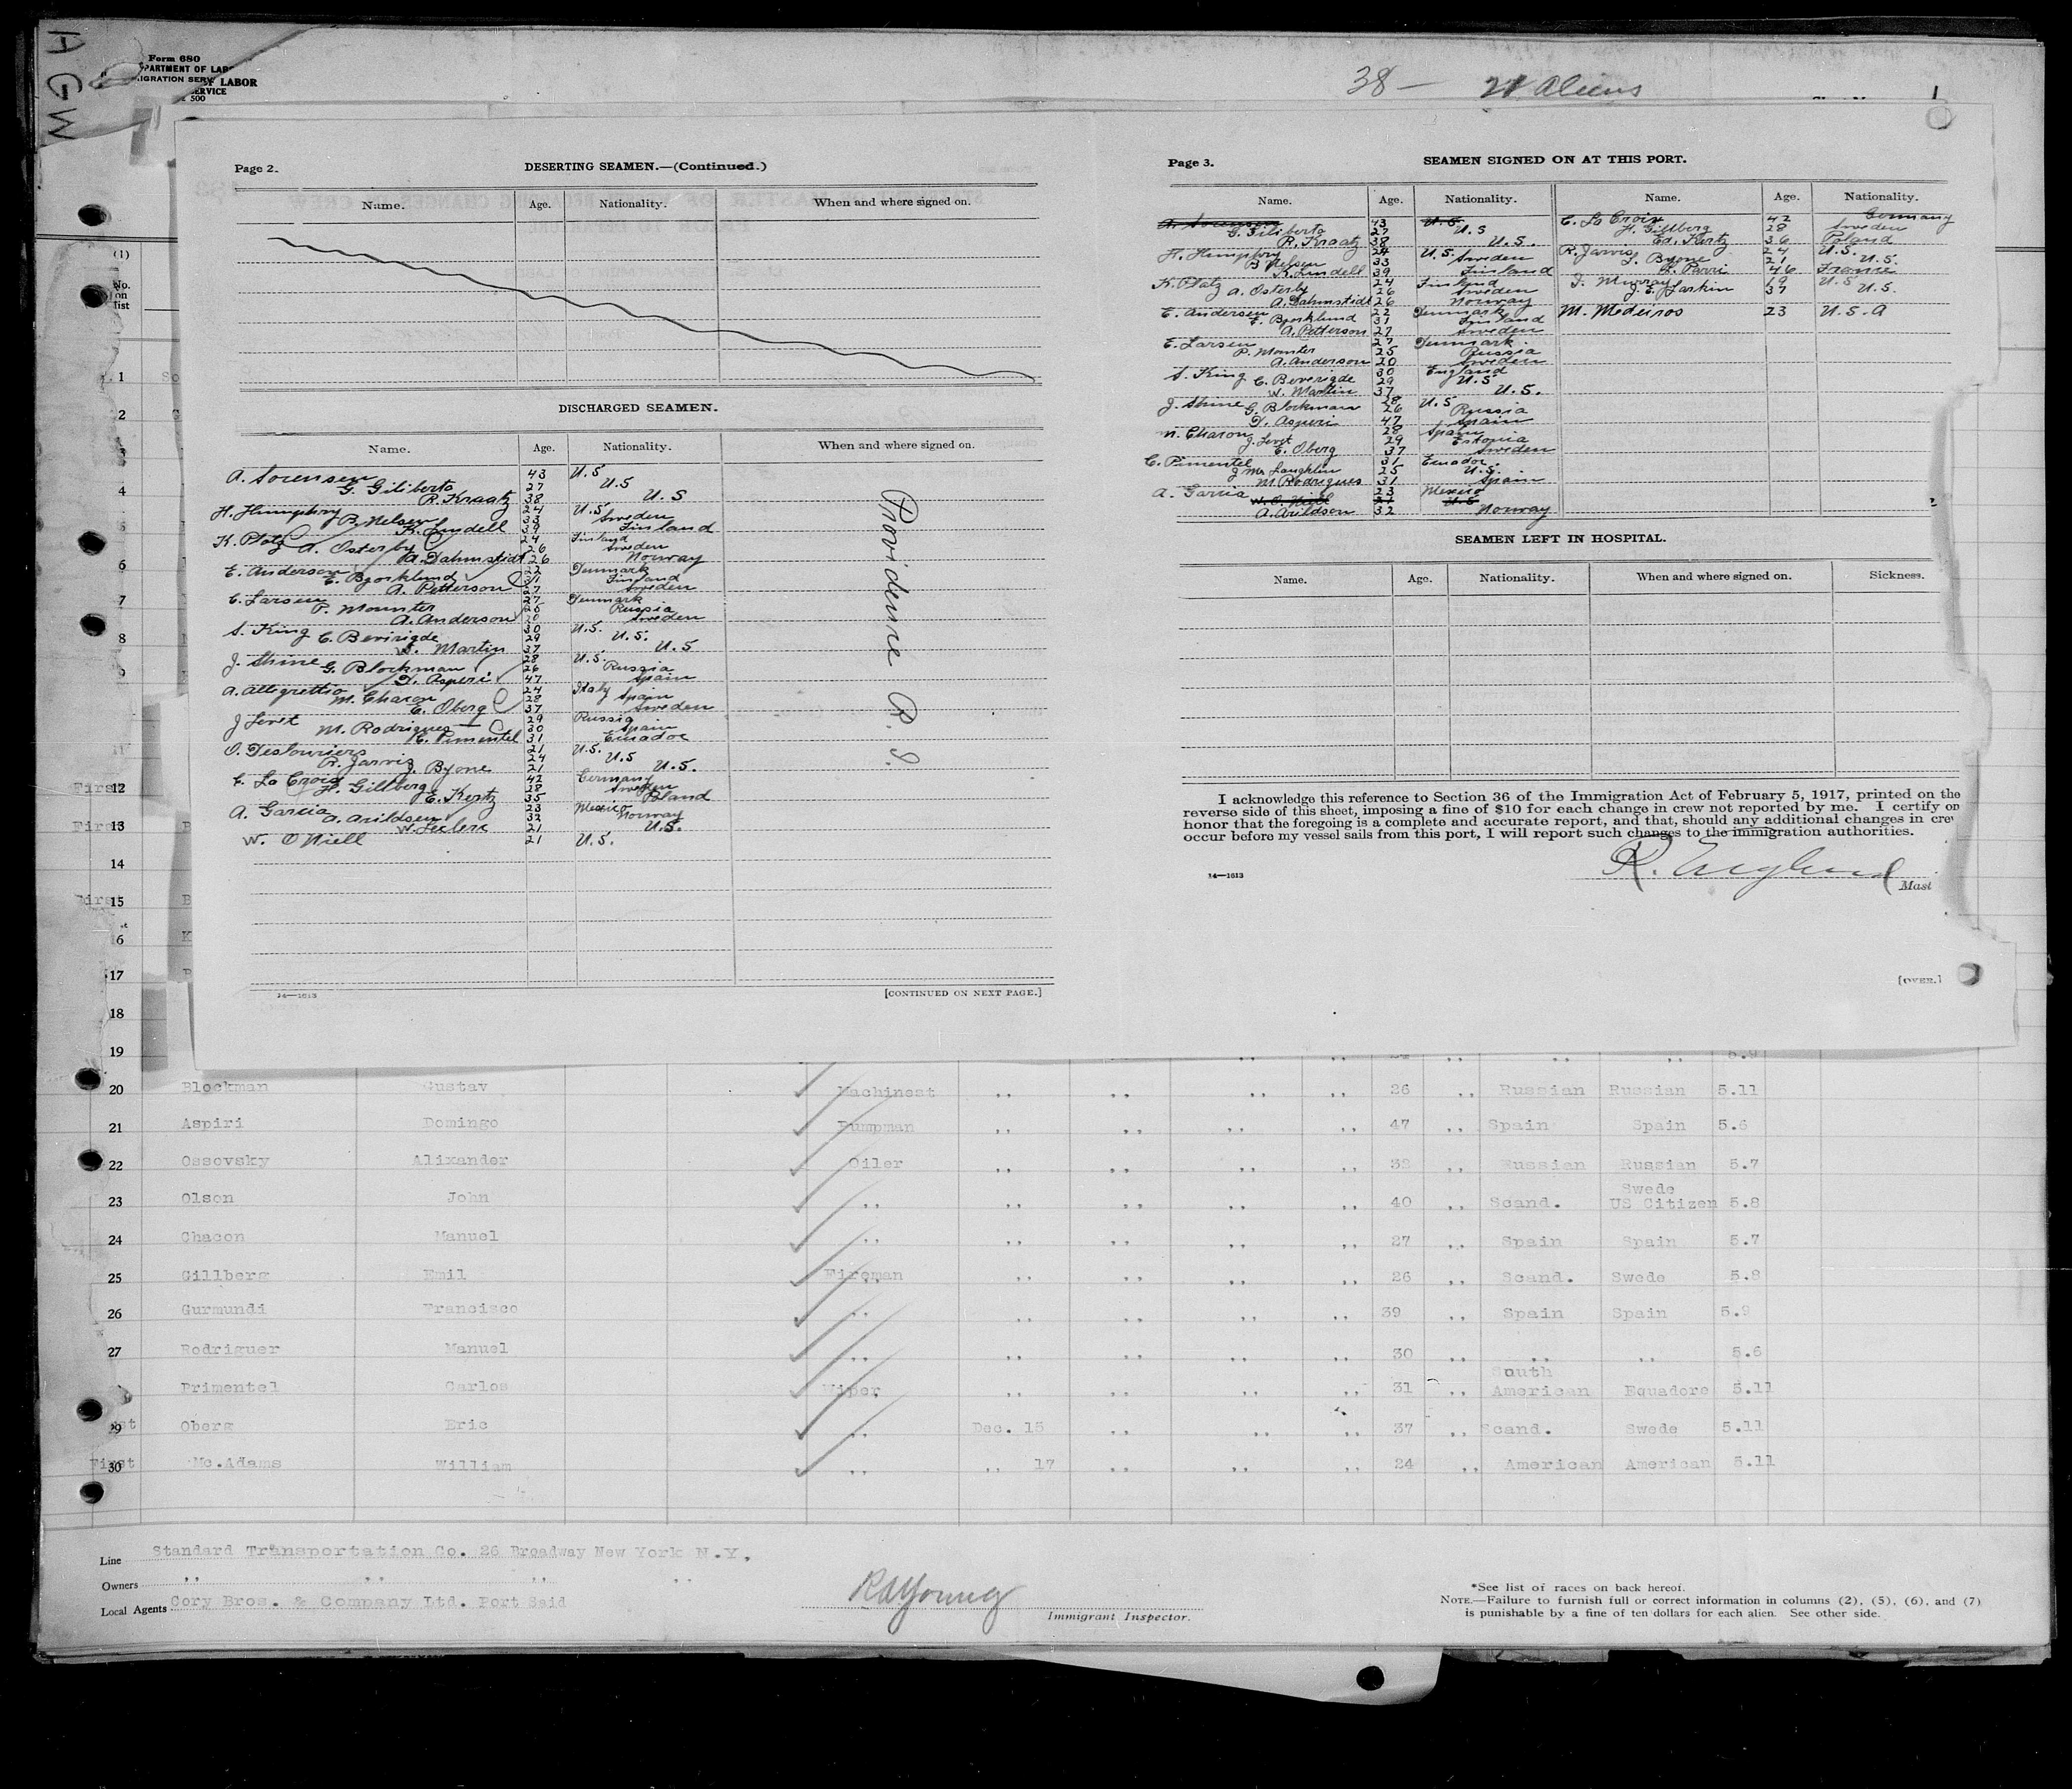 A G W
Form 680
OF LABOR
38 — 21 Aliens
1
Page 2.
DESERTING SEAMEN.—(Continued.)
Name. Age. Nationality. When and where signed on.
DISCHARGED SEAMEN.
Name. Age. Nationality. When and where signed on.
Providence R. I.
A. Sorensen 43 U.S
G. Giliberto 27 U.S
R. Kraatz 38 U.S
H. Humphry 24 U.S.
B. Nelsen 33 Sweden
K. Lindell 39 Finland
K. Platz 24 Finland
A. Osterby 26 Sweden
A. Dahmstidt 26 Norway
E. Andersen 22 Denmark
E. Bjorklund 31 Finland
A. Petterson 27 Sweden
E. Larsen 27 Denmark
P. Monster 25 Russia
A. Anderson 20 Sweden
S. King 30 U.S.
C. Beverigde 29 U.S.
W. Martin 37 U.S
J. Shine 28 U.S.
G. Blockman 26 Russia
D. Asperi 47 Spain
A. Allegrettio 24 Italy
M. Chacon 28 Spain
E. Oberg 37 Sweden
J Levet 29 Russia
M. Rodrigues 30 Spain
C. Pimentel 31 Ecuador
O. Deslouriers 21 U.S.
R. Jarvis 24 U.S
J. Byone 21 U.S.
E. La Croix 42 Germany
H. Gillberg 28 Sweden
E. Kertz 35 Poland
A. Garcia 23 Mexico
A. Arildsen 32 Norway
W. Leclerc 21 U.S.
W. O Niell 21 U.S.
14—1613
[CONTINUED ON NEXT PAGE.]
Page 3.
SEAMEN SIGNED ON AT THIS PORT.
Name. Age. Nationality. Name. Age. Nationality.
A. Sorensen 43 U.S
G. Giliberto 27 U.S
R. Kraatz 38 U.S.
H. Humphry 24 U.S.
B Nelsen 33 Sweden
K. Lindell 39 Finland
K. Platz 24 Finland
A. Osterby 26 Sweden
A. Dahmstidt 26 Norway
E. Andersen 22 Denmark
E. Bjorklund 31 Finland
A. Petterson 27 Sweden
E. Larsen 27 Denmark.
P. Monster 25 Russia
A. Anderson 20 Sweden
S. King 30 England
C. Beverigde 29 U.S.
W. Martin 37 U.S.
J. Shine 28 U.S
G. Blockman 26 Russia
D. Asperi 47 Spain
M. Chacon 28 Spain
J. Levet 29 Estonia
E. Oberg 37 Sweden
C. Pimentel 31 Ecuador.
J Mc Laughlin 25 U.S.
M. Rodrigues 31 Spain
A. Garcia 23 Mexico
W. O. Niell 21 U.S
A. Arildson 32 Norway
E. La Croix 42 Germany
H. Gillberg 28 Sweden
Ed. Kertz 36 Poland
R. Jarvis 24 U.S.
J. Byone 21 U.S.
46 France
J. Murray 19 U.S
J. E. Larkin 37 U.S.
M. Medeiros 23 U.S.A
SEAMEN LEFT IN HOSPITAL.
Name. Age. Nationality. When and where signed on. Sickness.
I acknowledge this reference to Section 36 of the Immigration Act of February 5, 1917, printed on the
reverse side of this sheet, imposing a fine of $10 for each change in crew not reported by me. I certify on
honor that the foregoing is a complete and accurate report, and that, should any additional changes in crew
occur before my vessel sails from this port, I will report such changes to the immigration authorities.
R. Englund
Mast
14—1613
[OVER.]
(1)
No. on list
1
2
3
4
5
6
7
8
9
11
First 12
First 13
14
15
16
17
18
19
20 Blockman Gustav Machinest ,, ,, ,, ,, 26 ,, Russian Russian 5.11
21 Aspiri Domingo Pumpman ,, ,, ,, ,, 47 ,, Spain Spain 5.6
22 Ossovsky Alixander Oiler ,, ,, ,, ,, 32 ,, Russian Russian 5.7
23 Olson John ,, ,, ,, ,, ,, 40 ,, Scand. Swede US Citizen 5.8
24 Chacon Manuel ,, ,, ,, ,, ,, 27 ,, Spain Spain 5.7
25 Gillberg Emil Fireman ,, ,, ,, ,, 26 ,, Scand. Swede 5.8
26 Gurmundi Francisco ,, ,, ,, ,, ,, 39 ,, Spain Spain 5.9
27 Rodriguer Manuel ,, ,, ,, ,, ,, 30 ,, ,, ,, 5.6
Primentel Carlos Wiper ,, ,, ,, ,, 31 ,, South American Equadore 5.11
29 Oberg Eric ,, Dec. 15 ,, ,, ,, 37 ,, Scand. Swede 5.11
First 30 Mc.Adams William ,, ,, 17 ,, ,, ,, 24 ,, American American 5.11
Line Standard Transportation Co. 26 Broadway New York N.Y,
Owners ,, ,, ,, ,,
Local Agents Cory Bros. & Company Ltd. Port Said
RAYoung
Immigrant Inspector.
*See list of races on back hereof.
NOTE.—Failure to furnish full or correct information in columns (2), (5), (6), and (7)
is punishable by a fine of ten dollars for each alien. See other side.